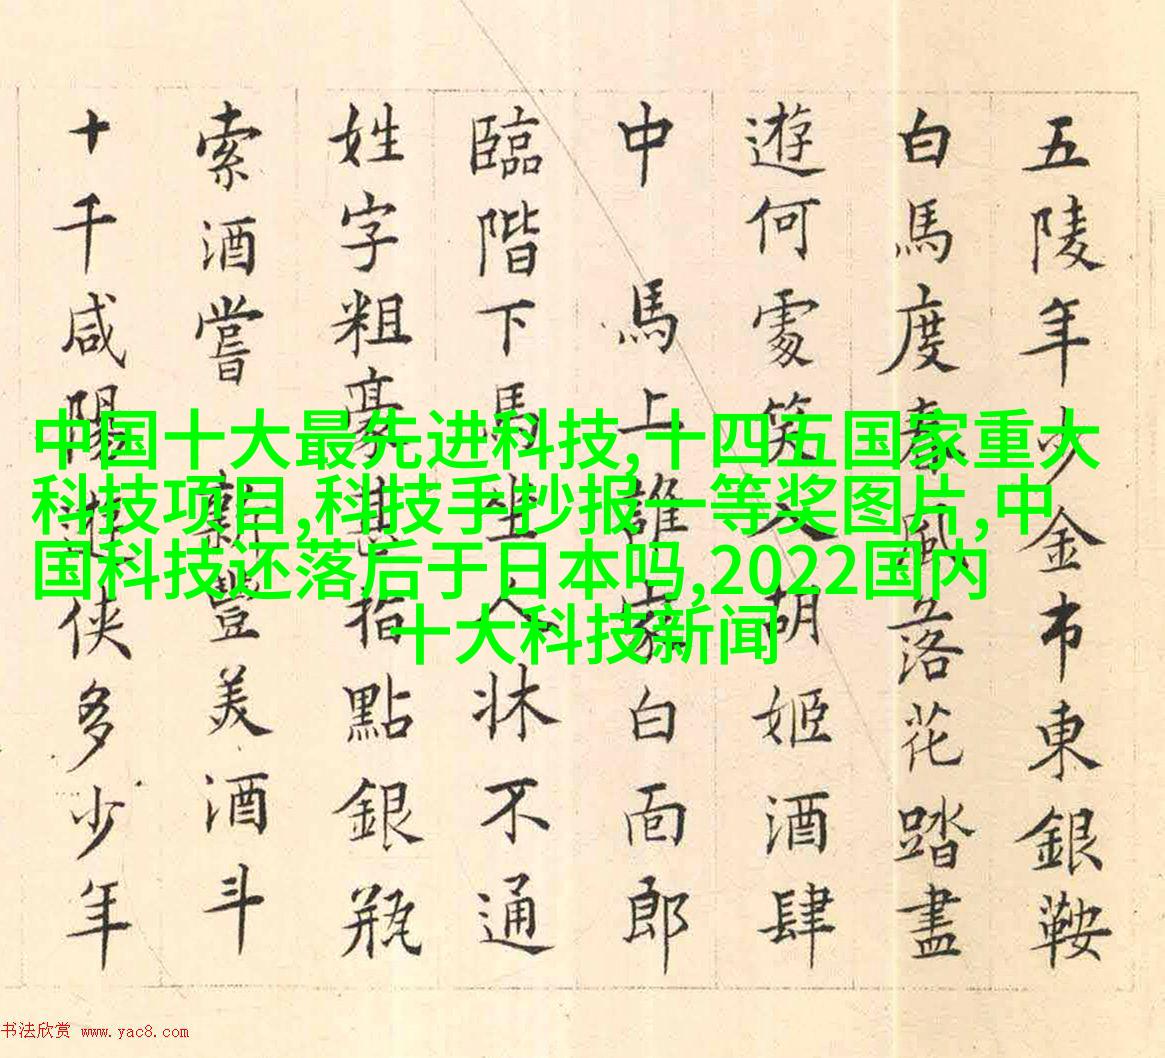 五陵年少金市東銀鞍
白馬度春風落花踏盡
遊何處笑入胡姬酒肆
中 馬上誰家白面郎
臨階下馬坐人牀不通
姓字粗豪甚指點銀瓶
索酒嘗 新豐美酒斗
十千咸陽遊侠多少年
中国十大最先进科技,十四五国家重大
科技项目,科技手抄报一等奖图片,中
国科技还落后于日本吗,2022国内
十大科技新闻
书法欣赏 www.yac8.com